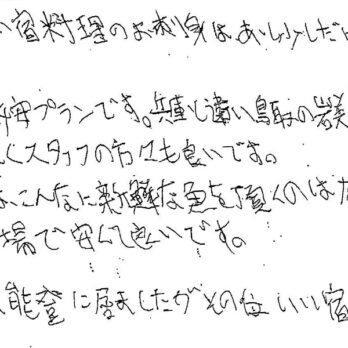 宿料理のお刺身はあ
プランです。兵庫と違い鳥取の岩美
くスタッフの方々も良いです。
、こんなに新鮮な魚を頂くのは
場で安くて良いです。
能登に した がその位いい宿